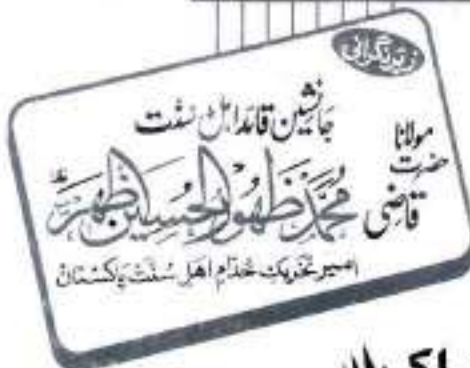 زیر نگرانی
جانشین قائد اہل سنت
حضرت مولانا
قاضی محمد ظہور الحسین اظہر
امیر تحریک خدام اہل سنت پاکستان